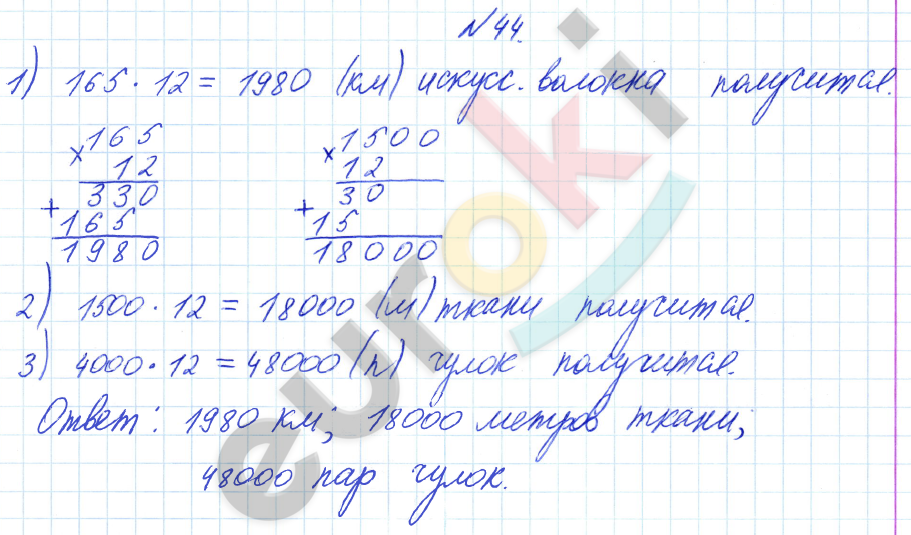 N 44.
1) 165 · 12 = 1980 (км) искусс. волокна получится.
× 165 × 1500
12 12
330 30
+ +
165 15
1980 18000
2) 1500 · 12 = 18000 (м) ткани получится.
3) 4000 · 12 = 48000 (п) чулок получится.
Ответ: 1980 км; 18000 метров ткани;
48000 пар чулок.
euroki